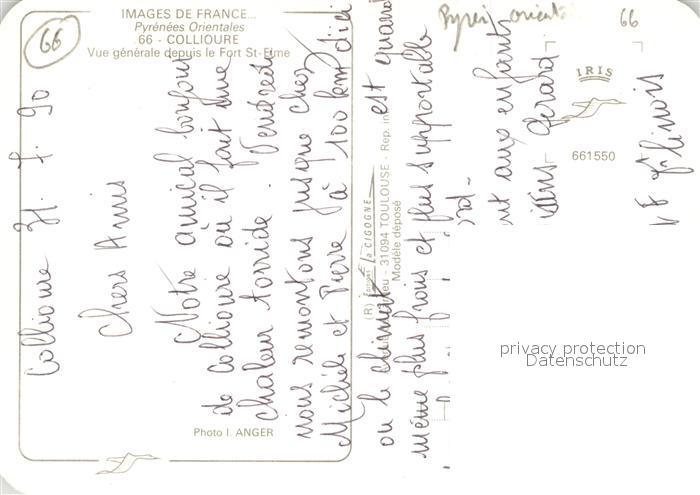 66
IMAGES DE FRANCE...
Pyrénées Orientales
66 - COLLIOURE
Vue générale depuis le Fort St-Elme
Collioure 31.7.90
Chers Amis
Notre amical bonjour
de Collioure où il fait une
chaleur torride. Vendredi
nous remontons jusque chez
Michèle et Pierre à 100 km d'ici
où le climat est quand
même plus frais et plus supportable
Photo I. ANGER
(R) Editions La CIGOGNE
31094 TOULOUSE - Rep. in
Modèle déposé
66
IRIS
661550
ut aux enfants
Gérard
privacy protection
Datenschutz